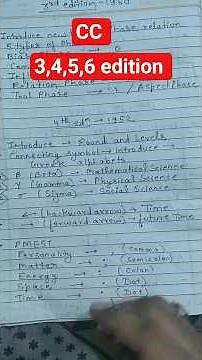 3rd edition - 1950
CC
3,4,5,6 edition
Introduce new phase relation
5 types of
Relation Phase
Tool Phase / Aspect Phase
4th edn → 1952
Introduce → Round and Levels
Connecting symbol → Introduce →
Greek alphabets
β (Beta) → Mathematical Science
γ (Gamma) → Physical Science
σ (Sigma) → Social Science
← (backward arrow) → Time
→ (forward arrow) → future Time
PMEST
Personality → , (comma)
Matter → ; (semicolon)
Energy → : (Colon)
Space → . (Dot)
Time → . (Dot)